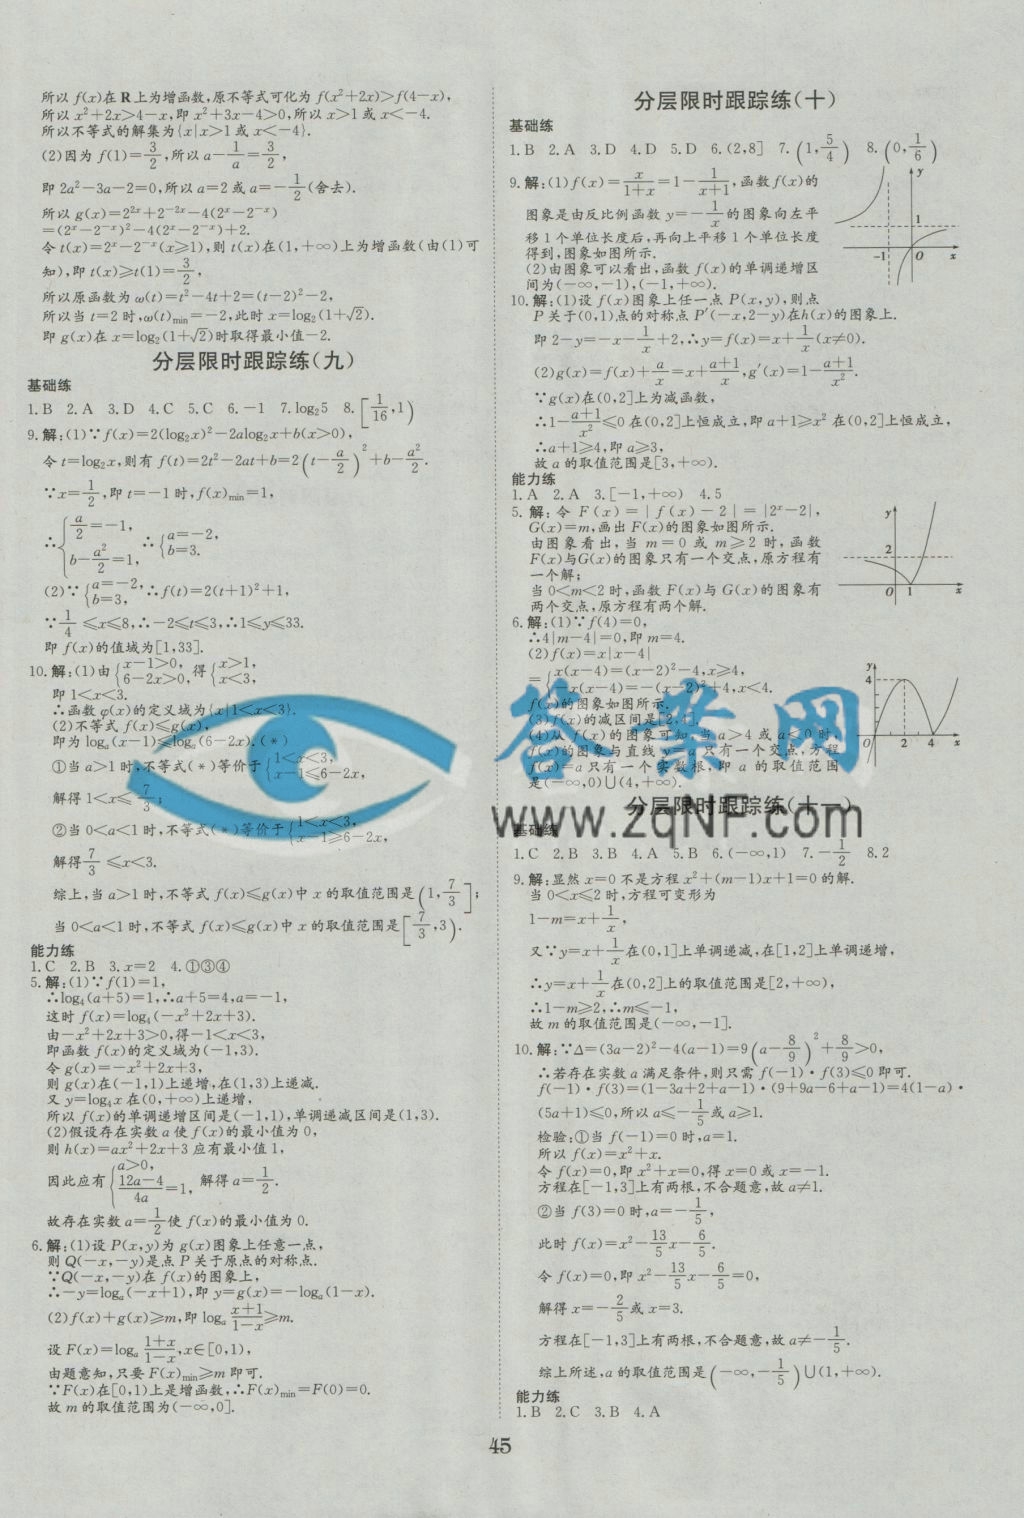 所以 f(x)在 R 上为增函数,原不等式可化为 f(x²+2x)>f(4-x),
所以 x²+2x>4-x,即 x²+3x-4>0,所以 x>1 或 x<-4.
所以不等式的解集为{x|x>1 或 x<-4}.
(2)因为 f(1)=3/2,所以 a-1/a=3/2,
即 2a²-3a-2=0,所以 a=2 或 a=-1/2(舍去).
所以 g(x)=2²ˣ+2⁻²ˣ-4(2ˣ-2⁻ˣ)
=(2ˣ-2⁻ˣ)²-4(2ˣ-2⁻ˣ)+2.
令 t(x)=2ˣ-2⁻ˣ(x≥1),则 t(x)在(1,+∞)上为增函数(由(1)可
知),即 t(x)≥t(1)=3/2,
所以原函数为 ω(t)=t²-4t+2=(t-2)²-2,
所以当 t=2 时,ω(t)min=-2,此时 x=log₂(1+√2).
即 g(x)在 x=log₂(1+√2)时取得最小值-2.
分层限时跟踪练(九)
基础练
1.B 2.A 3.D 4.C 5.C 6.-1 7.log₂5 8.[1/16,1)
9.解:(1)∵f(x)=2(log₂x)²-2alog₂x+b(x>0),
令 t=log₂x,则有 f(t)=2t²-2at+b=2(t-a/2)²+b-a²/2.
∵x=1/2,即 t=-1 时,f(x)min=1,
∴{a/2=-1, b-a²/2=1, ∴{a=-2, b=3.
(2)∵{a=-2, b=3, ∴f(t)=2(t+1)²+1,
∵1/4≤x≤8,∴-2≤t≤3,∴1≤y≤33.
即 f(x)的值域为[1,33].
10.解:(1)由{x-1>0, 6-2x>0,得{x>1, x<3,
即 1<x<3.
∴函数 φ(x)的定义域为{x|1<x<3}.
(2)不等式 f(x)≤g(x),
即为 logₐ(x-1)≤logₐ(6-2x).(*)
①当 a>1 时,不等式(*)等价于{1<x<3, x-1≤6-2x,
解得 1<x≤7/3;
②当 0<a<1 时,不等式(*)等价于{1<x<3, x-1≥6-2x,
解得 7/3≤x<3.
综上,当 a>1 时,不等式 f(x)≤g(x)中 x 的取值范围是(1,7/3];
当 0<a<1 时,不等式 f(x)≤g(x)中 x 的取值范围是[7/3,3).
能力练
1.C 2.B 3.x=2 4.①③④
5.解:(1)∵f(1)=1,
∴log₄(a+5)=1,∴a+5=4,a=-1,
这时 f(x)=log₄(-x²+2x+3).
由-x²+2x+3>0,得-1<x<3,
即函数 f(x)的定义域为(-1,3).
令 g(x)=-x²+2x+3,
则 g(x)在(-1,1)上递增,在(1,3)上递减.
又 y=log₄x 在(0,+∞)上递增,
所以 f(x)的单调递增区间是(-1,1),单调递减区间是(1,3).
(2)假设存在实数 a 使 f(x)的最小值为 0,
则 h(x)=ax²+2x+3 应有最小值 1,
因此应有{a>0, (12a-4)/4a=1, 解得 a=1/2.
故存在实数 a=1/2 使 f(x)的最小值为 0.
6.解:(1)设 P(x,y)为 g(x)图象上任意一点,
则 Q(-x,-y)是点 P 关于原点的对称点.
∵Q(-x,-y)在 f(x)的图象上,
∴-y=logₐ(-x+1),即 y=g(x)=-logₐ(1-x).
(2)f(x)+g(x)≥m,即 logₐ (x+1)/(1-x)≥m.
设 F(x)=logₐ (1+x)/(1-x),x∈[0,1),
由题意知,只要 F(x)min≥m 即可.
∵F(x)在[0,1)上是增函数,∴F(x)min=F(0)=0.
故 m 的取值范围为(-∞,0].
分层限时跟踪练(十)
基础练
1.B 2.A 3.D 4.D 5.D 6.(2,8] 7.(1,5/4) 8.(0,1/6)
9.解:(1)f(x)=x/(1+x)=1-1/(x+1),函数 f(x)的
图象是由反比例函数 y=-1/x 的图象向左平
移 1 个单位长度后,再向上平移 1 个单位长度
得到,图象如图所示.
(2)由图象可以看出,函数 f(x)的单调递增区
间为(-∞,-1),(-1,+∞).
y
1
-1 O x
10.解:(1)设 f(x)图象上任一点 P(x,y),则点
P 关于(0,1)点的对称点 P′(-x,2-y)在 h(x)的图象上.
即 2-y=-x-1/x+2,∴y=f(x)=x+1/x(x≠0).
(2)g(x)=f(x)+a/x=x+(a+1)/x,g′(x)=1-(a+1)/x².
∵g(x)在(0,2]上为减函数,
∴1-(a+1)/x²≤0 在(0,2]上恒成立,即 a+1≥x² 在(0,2]上恒成立,
∴a+1≥4,即 a≥3,
故 a 的取值范围是[3,+∞).
能力练
1.A 2.A 3.[-1,+∞) 4.5
5.解:令 F(x)=|f(x)-2|=|2ˣ-2|,
G(x)=m,画出 F(x)的图象如图所示.
由图象看出,当 m=0 或 m≥2 时,函数
F(x)与 G(x)的图象只有一个交点,原方程有
一个解;
当 0<m<2 时,函数 F(x)与 G(x)的图象有
两个交点,原方程有两个解.
y
2
O 1 x
6.解:(1)∵f(4)=0,
∴4|m-4|=0,即 m=4.
(2)f(x)=x|x-4|
={x(x-4)=(x-2)²-4,x≥4,
-x(x-4)=-(x-2)²+4,x<4.
f(x)的图象如图所示.
(3)f(x)的减区间是[2,4].
(4)从 f(x)的图象可知,当 a>4 或 a<0 时,
f(x)的图象与直线 y=a 只有一个交点,方程
f(x)=a 只有一个实数根,即 a 的取值范围
是(-∞,0)∪(4,+∞).
y
4
O 2 4 x
答案网
www.zqNF.com
分层限时跟踪练(十一)
基础练
1.C 2.B 3.B 4.A 5.B 6.(-∞,1) 7.-1/2 8.2
9.解:显然 x=0 不是方程 x²+(m-1)x+1=0 的解.
当 0<x≤2 时,方程可变形为
1-m=x+1/x,
又∵y=x+1/x 在(0,1]上单调递减,在[1,2]上单调递增,
∴y=x+1/x 在(0,2]上的取值范围是[2,+∞),
∴1-m≥2,∴m≤-1,
故 m 的取值范围是(-∞,-1].
10.解:∵Δ=(3a-2)²-4(a-1)=9(a-8/9)²+8/9>0,
∴若存在实数 a 满足条件,则只需 f(-1)·f(3)≤0 即可.
f(-1)·f(3)=(1-3a+2+a-1)·(9+9a-6+a-1)=4(1-a)·
(5a+1)≤0,所以 a≤-1/5 或 a≥1.
检验:①当 f(-1)=0 时,a=1.
所以 f(x)=x²+x.
令 f(x)=0,即 x²+x=0,得 x=0 或 x=-1.
方程在[-1,3]上有两根,不合题意,故 a≠1.
②当 f(3)=0 时,a=-1/5,
此时 f(x)=x²-13/5x-6/5.
令 f(x)=0,即 x²-13/5x-6/5=0,
解得 x=-2/5 或 x=3.
方程在[-1,3]上有两根,不合题意,故 a≠-1/5.
综上所述,a 的取值范围是(-∞,-1/5)∪(1,+∞).
能力练
1.B 2.C 3.B 4.A
45